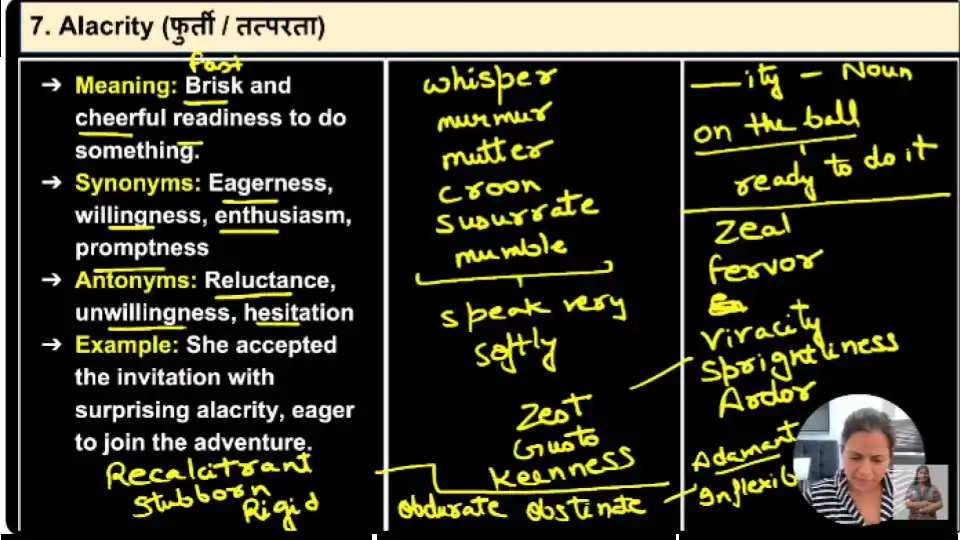 7. Alacrity (फुर्ती / तत्परता)
fast
➔ Meaning: Brisk and
cheerful readiness to do
something.
➔ Synonyms: Eagerness,
willingness, enthusiasm,
promptness
➔ Antonyms: Reluctance,
unwillingness, hesitation
➔ Example: She accepted
the invitation with
surprising alacrity, eager
to join the adventure.
Recalcitrant
Stubborn
Rigid
whisper
murmur
mutter
croon
susurrate
mumble
speak very
softly
Zest
Gusto
Keenness
obdurate obstinate
___ity - Noun
on the ball
ready to do it
Zeal
fervor
Vivacity
Sprightliness
Ardor
Adamant